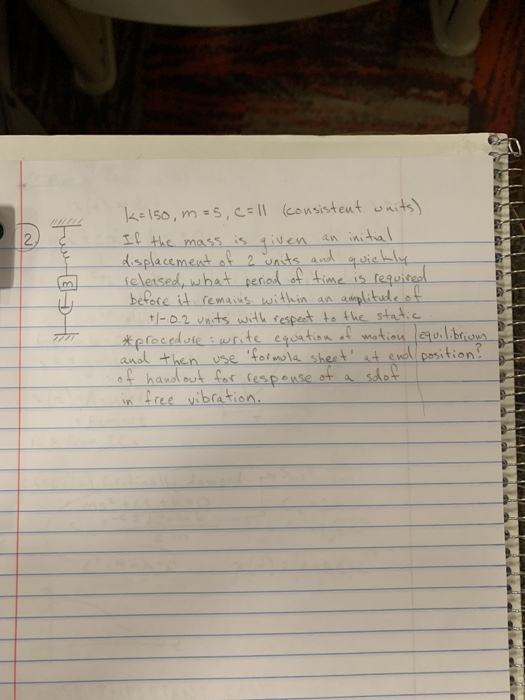 k=150, m=5, c=11 (consistent units)
2. If the mass is given an initial
displacement of 2 units and quickly
released, what period of time is required
before it remains within an amplitude of
+/-0.2 units with respect to the static
equilibrium
position?
*procedure: write equation of motion
and then use 'formula sheet' at end
of handout for response of a sdof
in free vibration.
m